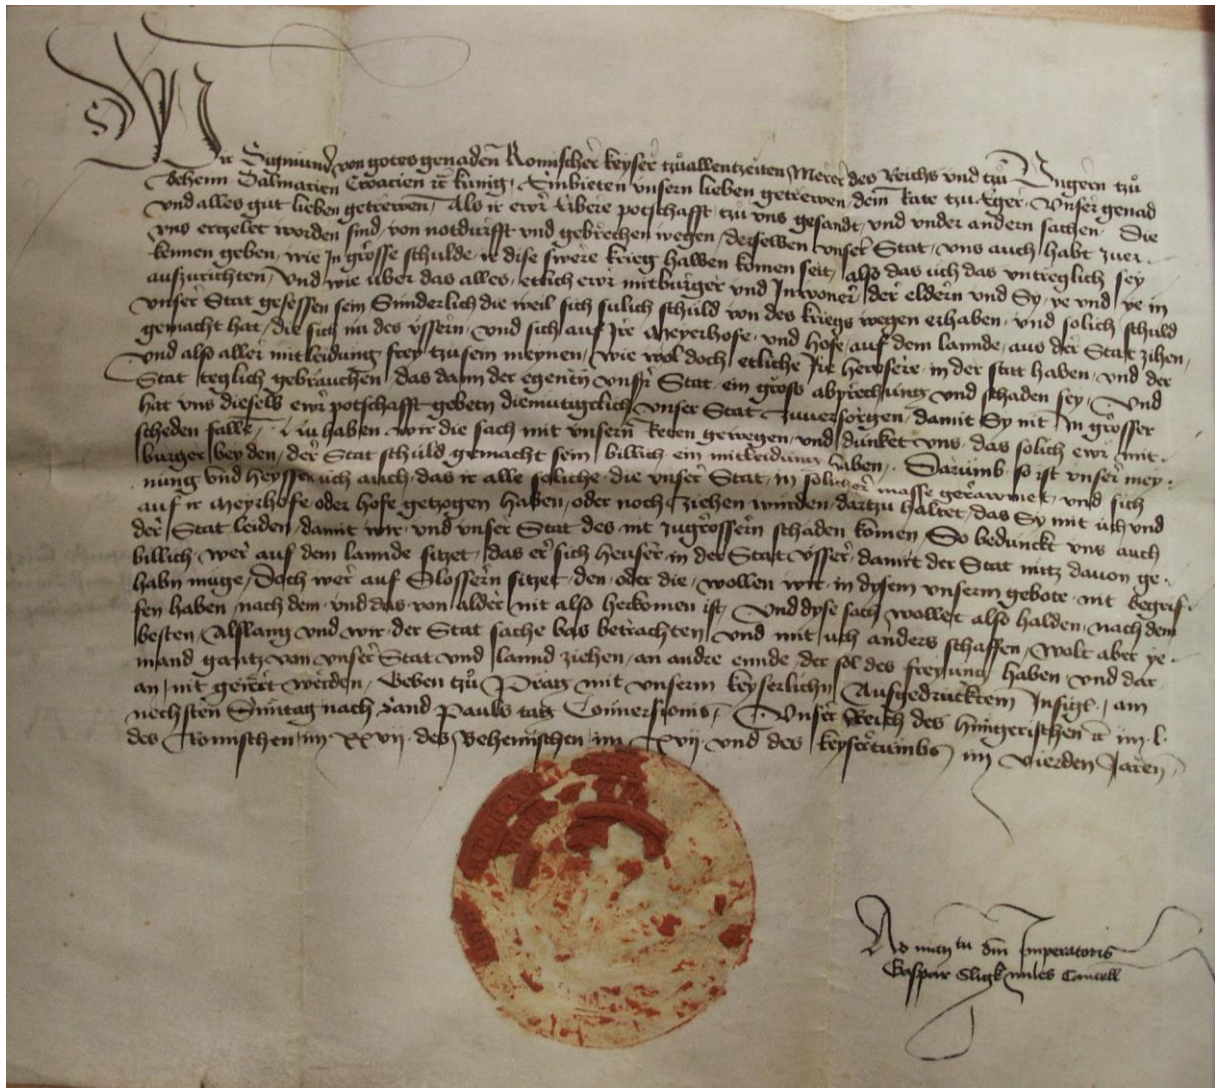 Wir Sigmund von gotes genaden Romischer keyser tzu allentzeiten Merer des Reichs und tzu Ungern tzu
Behem Dalmatien Croacien etc kunig, Embieten unsern lieben getrewen, dem Rate tzu Eger, Unser genad
und alles gut lieben getrewen, Als ir ewr erbere potschafft, tzu uns gesandt, und under andern sachen, Die
uns ertzelet worden sind, von notdurfft und gebrechen wegen, derselben unser Stat, uns auch, habt zuer-
kennen geben, wie In grosse schulde, ir dise swere krieg halben komen seit, also das uch das untreglich sey
auszurichten, Und wie uber das alles, etlich ewr mitburger und Inwoner, der eldern und Sy, ye und ye in
unser Stat gesessen sein Sunderlich die weil sich sulich schuld von des kriegs wegen erhaben, und solich schuld
gemacht hat, die sich nu des ussern, und sich auf Ire Meyerhofe, und hofe, auf dem lannde, aus der Stat zihen,
und also aller mitleidung frey tzu sein meynen, wie wol doch etliche Ire hewsere, in der stat haben, und der
Stat teglich gebrauchen, das dann der egenen unsr Stat, ein gross abprechung und schaden sey, Und
hat uns dieselb ewr potschafft gebeten diemuticlich unser Stat zuuersorgen, damit Sy nit In grosser
scheden falle, Nu haben wir die sach mit unsern Reten gewegen, und dunket uns, das solich ewr mit-
burger bey den, der Stat schuld gemacht sein, billich ein mitleidung haben, Darumb so ist unser mey-
nung und heyssen uch auch, das ir alle solliche, die unser Stat, in solicher masse gerawmet, und sich
auf ir Meyrhofe, oder hofe getzogen haben, oder noch ziehen wurden, dartzu haltet, das Sy mit uch und
der Stat leiden, damit wir, und unser Stat des nit zu grossern schaden komen, So bedunckt uns auch
billich, wer auf dem lannde sitzet, das er sich hewser, in der Stat usser, damit der Stat nutz davon ge-
habn muge, Doch wer auf Slossern sitzet, den, oder die, wollen wir, in dysem unserm gebote, nit begrif-
fen haben, nach dem, und das, von alder nit also herkomen ist, Und dyse sach wollet also halden, nach dem
besten, Alslang und wir, der Stat sache bas betrachten, und mit uch anders schaffen, Wolt aber ye-
mand gantz von unser Stat und lannd ziehen, an andre ennde, der sol des freyung haben, und dar
an nit geirret werden, Geben tzu Prag mit unserm keyserlichn Aufgedrucktem Insigl, am
nechsten Suntag nach Sand Pauls tag Conversionis, Unser Reich des hungerischen etc im l.
des Romischen im xxvii, des Behemischen im xvii, und des keysertumbs im vierden Jaren
Ad mandatum domini Imperatoris
Gaspar Sligk miles Cancell